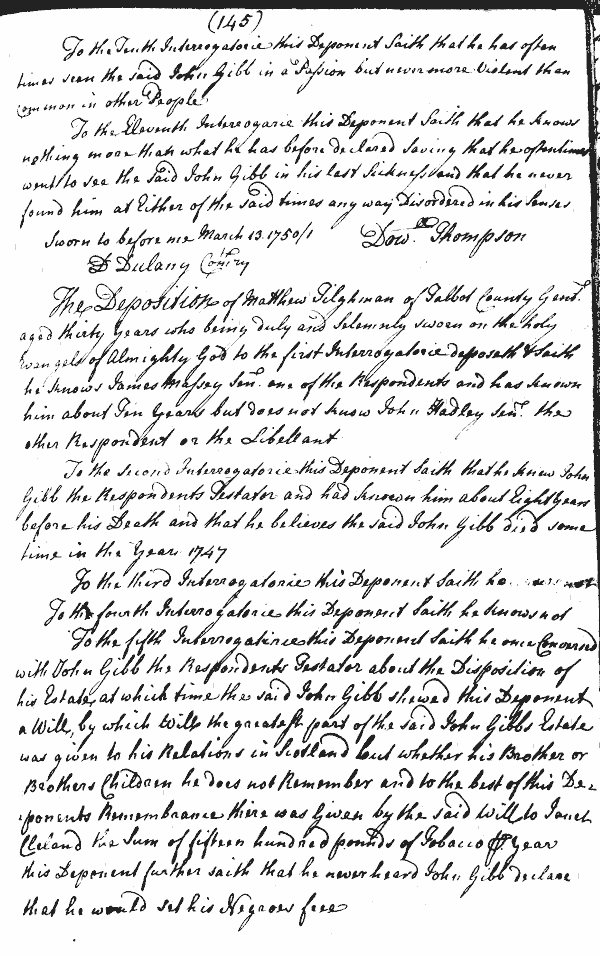 (145)
To the Tenth Interrogatorie this Deponent Saith that he has often
times seen the said John Gibb in a Passion but never more Violent than
Common in other People
To the Eleventh Interrogarie this Deponent Saith that he knows
nothing more than what he has before declared Saving that he oftentimes
went to see the Said John Gibb in his last Sickness and that he never
found him at Either of the said times any way Disordered in his Senses
Sworn to before me March 13. 1750/1 Dow. Thompson
D Dulany Comry
The Deposition of Matthew Tilghman of Talbot County Gent.
aged thirty Years who being duly and Solemnly sworn on the holy
Evangels of Almighty God to the first Interrogatorie deposeth & Saith
he knows James Massey Senr. one of the Respondents and has known
him about Ten Years but does not know John Hadley Senr. the
other Respondent or the Libellant
To the second Interrogatorie this Deponent Saith that he knew John
Gibb the Respondents Testator and had known him about Eight Years
before his Death and that he believes the said John Gibb died some
time in the Year 1747
To the third Interrogatorie this Deponent Saith he not
To the fourth Interrogatorie this Deponent Saith he knows not
To the fifth Interrogatirie this Deponent Saith he once Conversed
with John Gibb the Respondents Testator about the Disposition of
his Estate, at which time the said John Gibb shewed this Deponent
a Will, by which Will the greatest part of the said John Gibbs Estate
was given to his Relations in Scotland but whether his Brother or
Brothers Children he does not Remember and to the best of this De-
ponents Remembrance there was Given by the said Will to Janet
Cleland the Sum of fifteen hundred pounds of Tobacco Year
this Deponent further saith that he never heard John Gibb declare
that he would set his Negroes free